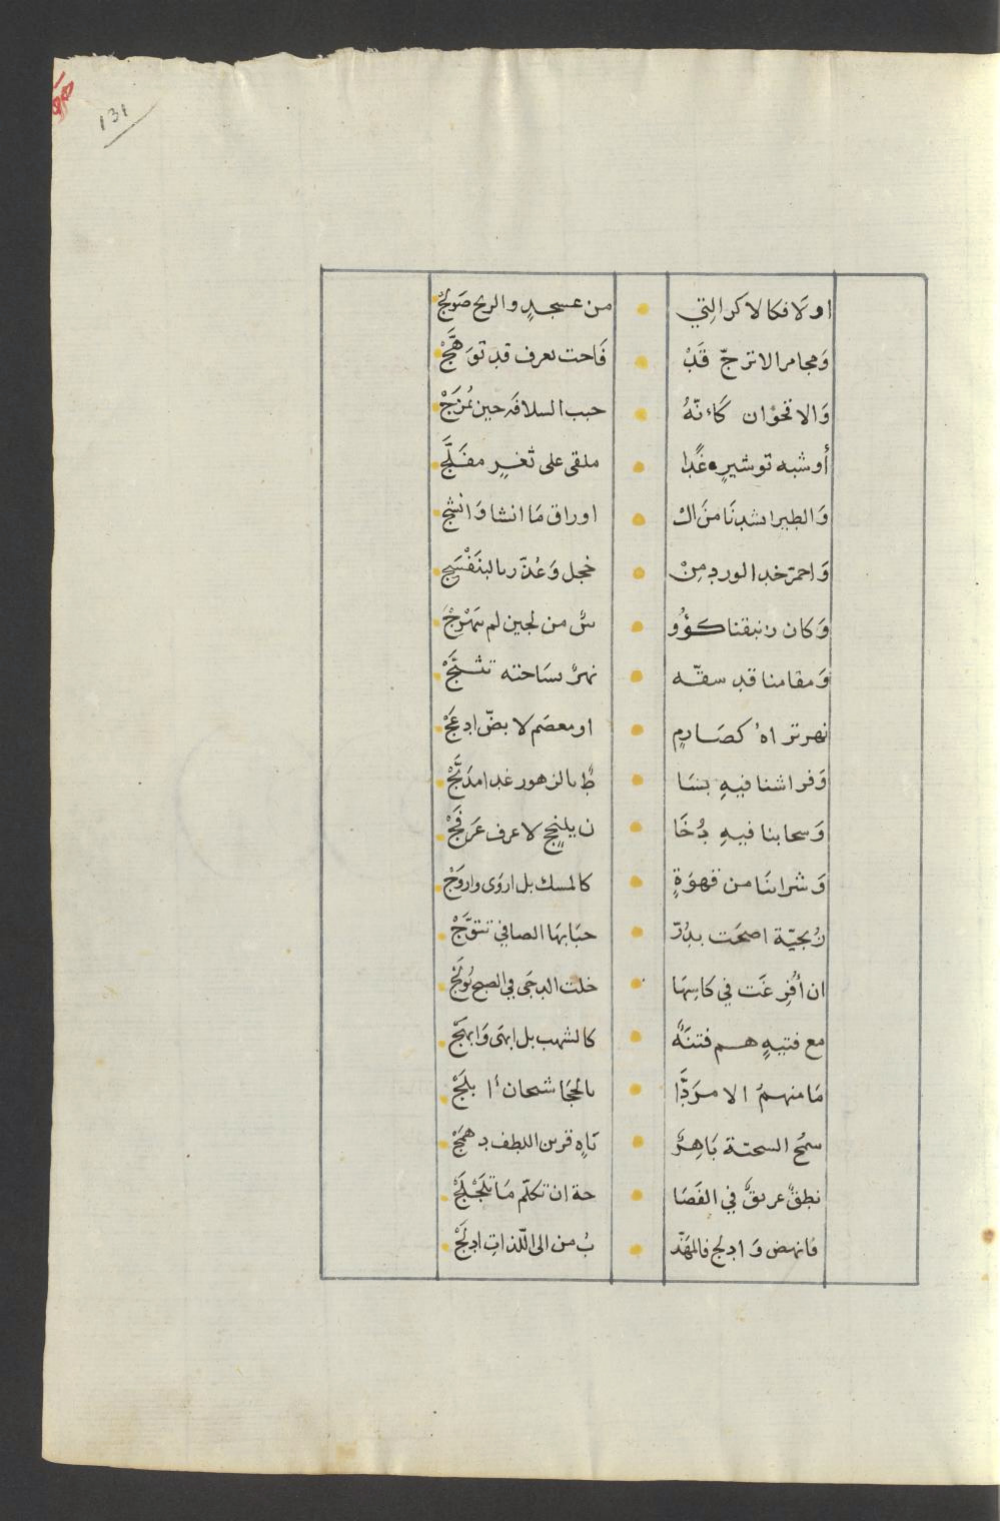 131
اولا فكالاكر التي من عسجدٍ والريح صَولجْ
وَمجامر الاترجّ قَدْ فَاحت بعرف قد تَوَهَّجْ
وَالاقحوُان كَاءنّهُ حبب السلافَه حين تُمزَجْ
أوشبه توشيرٍ غدًا ملقى على ثغرٍ مفَلَّجْ
وَالطير انشدنَا منَ الـ اوراق مَا انشا وَانشج
وَاحمرّ خد الورد مِنْ خجل وَعُذّر بالبنَفْسَج
وَكان زنبقنا كؤُو سٌ من لجين لم تمْزجْ
وَمقامنا قد سقّه نهرٌ بسَاحته تثَجَّجْ
نهر تراهُ كصَارمٍ اومعصَم لابضّ ادعَجْ
وَفراشنا فيهِ بسَا طٌ بالزهور غدا مدَبَّجْ
وَسحابنا فيهِ دُخَا ن يلنجٍ لاعرف عَرفَجْ
وَشرابنَا من قهوَةٍ كالمسك بل اروَى واروَجْ
رُبجيّة اضحَت بدُرّ حبَابهَا الصافي تتوَّجْ
ان أُفرِغَت في كاسِهَا خلت الدجَى في الصبح تُولَجْ
مع فتيهٍ هم فتنَةٌ كالشهب بل ابهَى وَابهَجْ
مَا منهمُ الا مرَدًّا بالحجَا شيحان أبلَجْ
سمْح السحنة بَاهِرٌ بَاهٍ قرين اللطف دهمَجْ
نطقٌ عريقٌ في الفصَا حة ان تكلّم مَا تلَجْلَجْ
فانهض وَادلج فالمهَذّ بُ من الى اللّذاتِ ادلَجْ